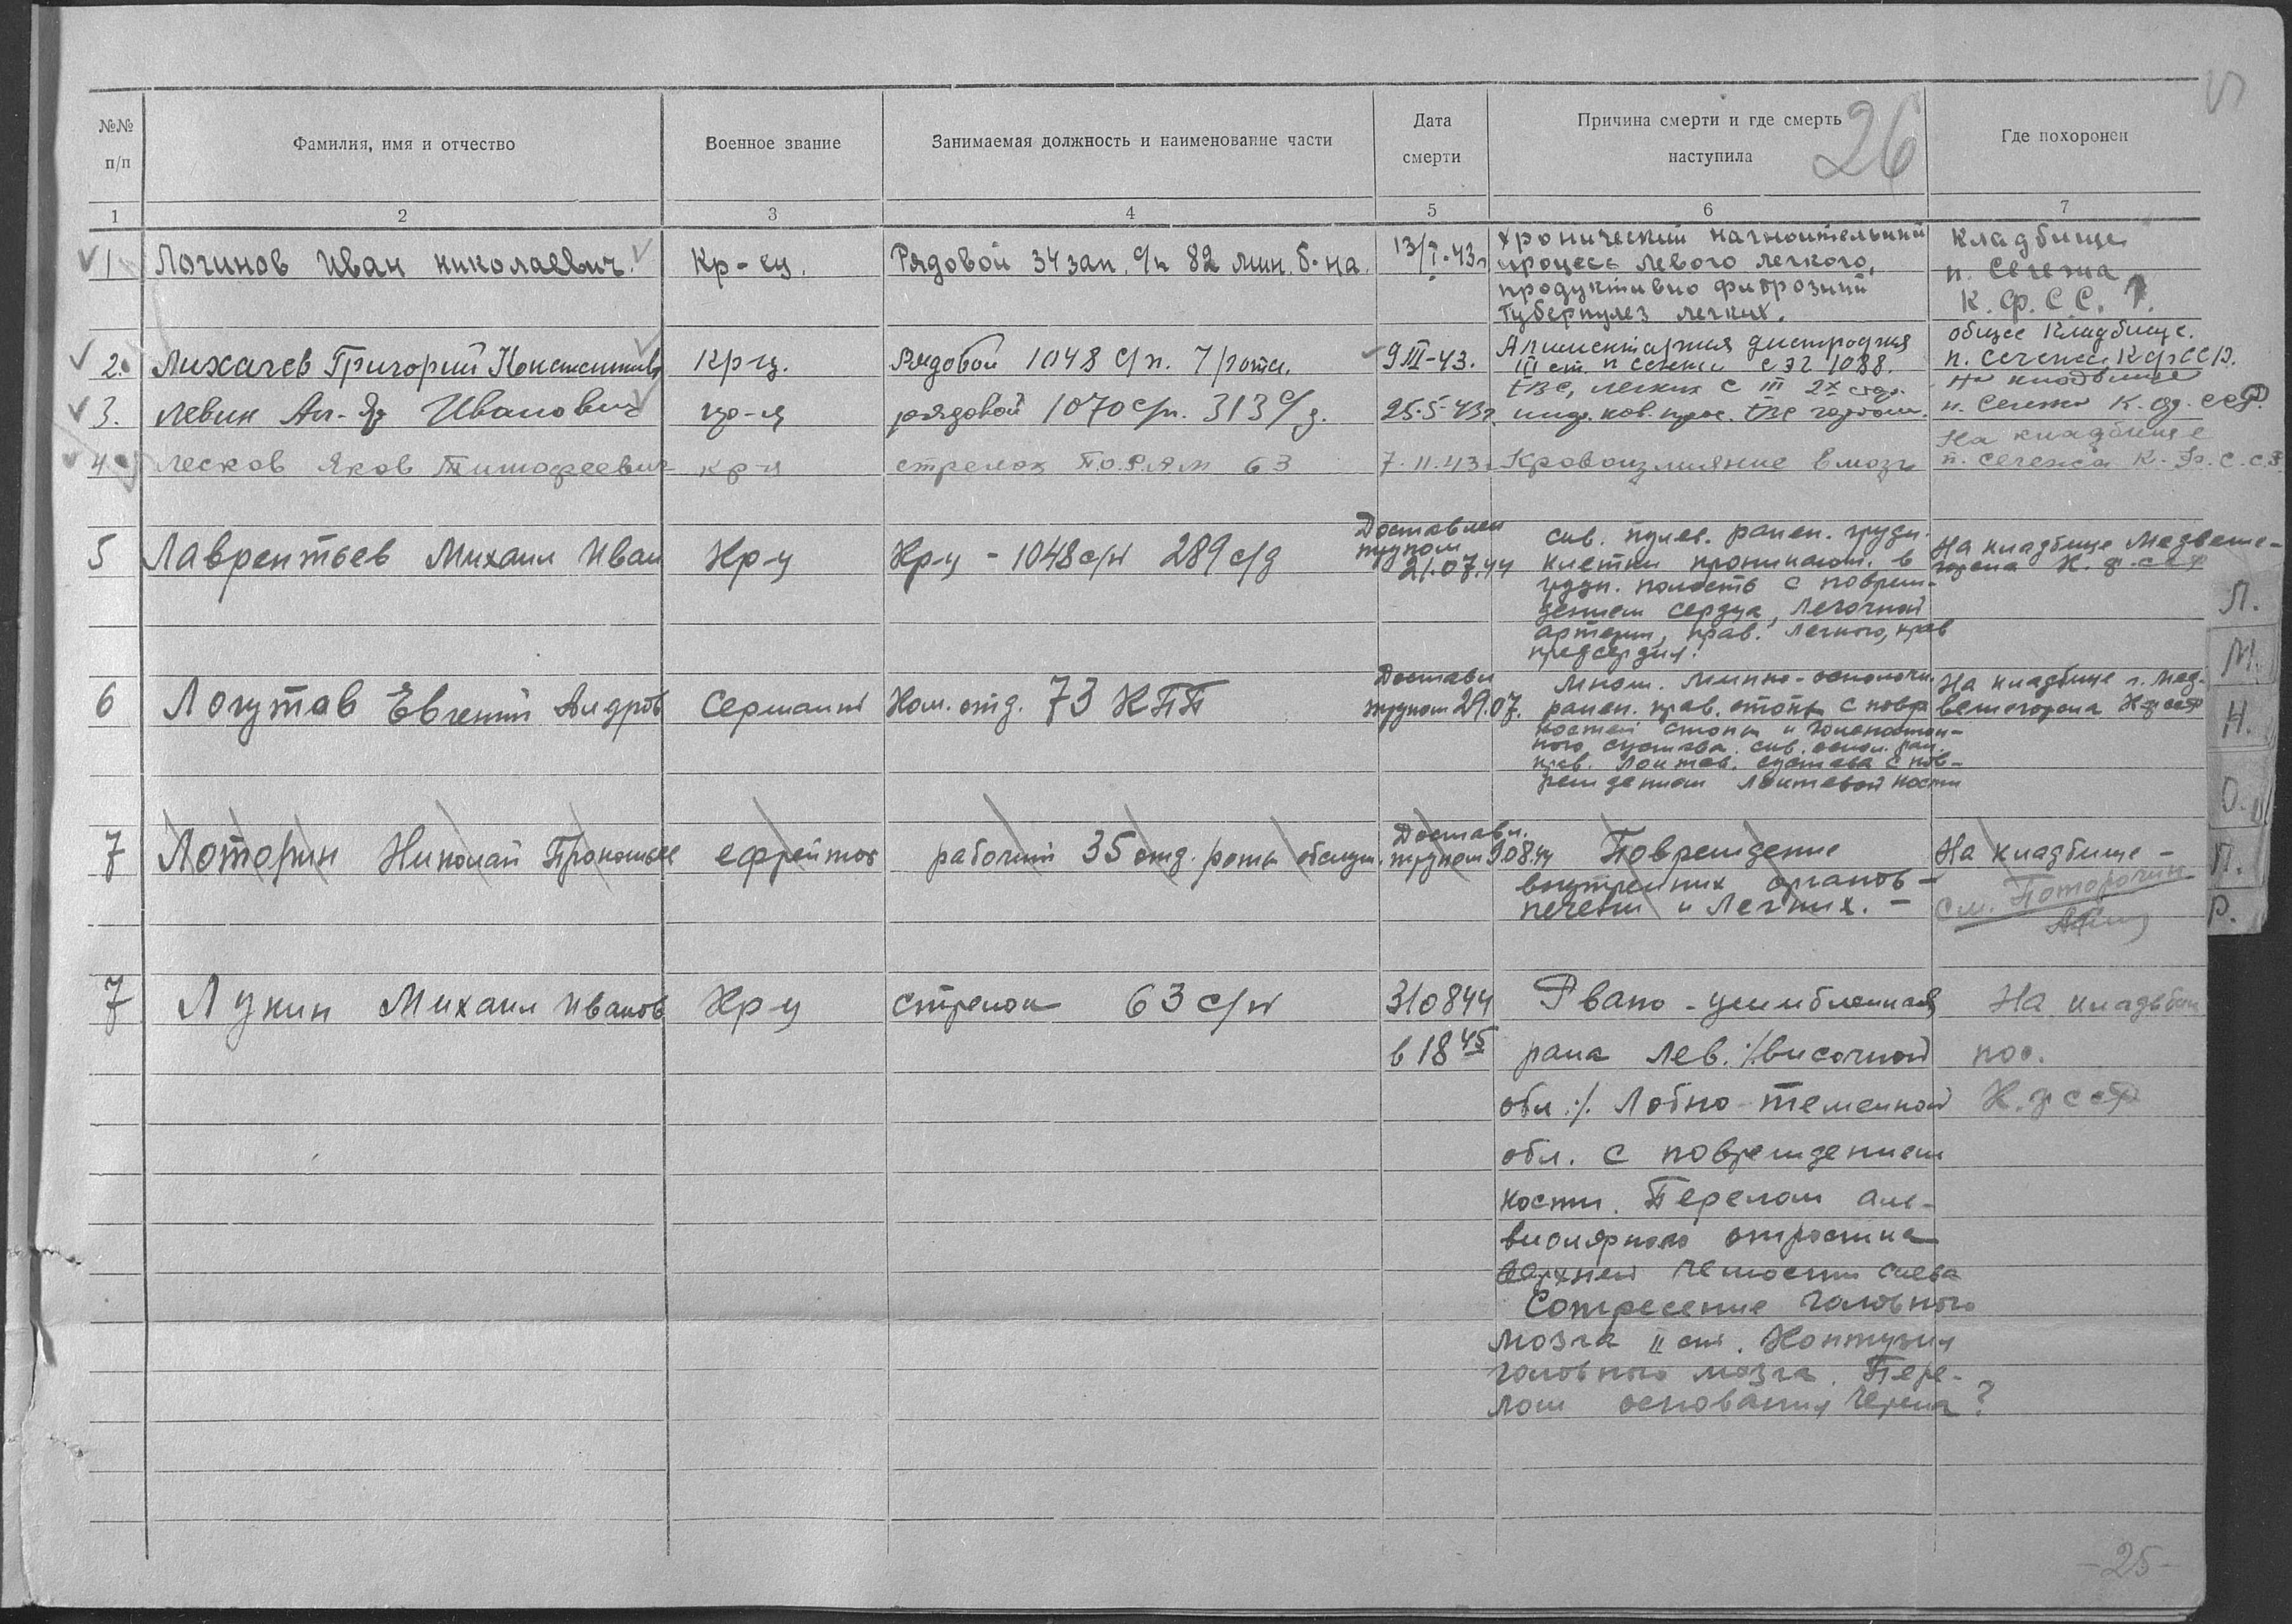 26
№№ п/п
Фамилия, имя и отчество
Военное звание
Занимаемая должность и наименование части
Дата смерти
Причина смерти и где смерть наступила
Где похоронен
1 2 3 4 5 6 7
1 Логинов Иван Николаевич. Кр-ец. Рядовой 34 зап. с/п 82 мин. б-на. 13/I-43г
хронический нагноительный
процесс левого легкого,
продуктивно фиброзный
туберкулез легких.
Кладбище
п. Сегежа
К. Ф. С С. Р.
2. Лихачев Григорий Константинов Кр-ц. Рядовой 1048 с/п. 7 рота. 9 III-43.
Алиментарная дистрофия
III ст. п Сегежа СЭГ 1088.
общее кладбище.
п. Сегежа К Ф ССР.
3. Левин Ал-др Иванович кр-ц рядовой 1070 с/п. 313 с/д. 25-5-43г.
ТВС, легких с III 2х стор.
ТВС гортани.
На кладбище
п. Сегежа К. Ф. ССР.
4 Лесков Яков Тимофеевич кр-ц стрелок 63 7.11.43г Кровоизлияние в мозг
На кладбище
п. Сегежа К. Ф. С. С. Р.
5 Лаврентьев Михаил Иван Кр-ц Кр-ц - 1048 с/п 289 с/д
Доставлен
трупом
21.07.44
слеп. пулев. ранен. грудн.
клетки проникающ. в
грудн. полость с повреж-
дением сердца, легочной
артерии, прав. легкого, прав
предсердия.
На кладбище Медвеже-
горска К. Ф. ССР
6 Логутов Евгений Андров Сержант Ком. отд. 73 КПП
Доставл
трупом 29.07.
Множ. минно-осколочн.
ранен. прав. стопы с повр
костей стопы и голеностоп-
ного сустава. слеп. оскол. ран.
прав. локтев. сустава с пов-
реждением локтевой кости
На кладбище г. Мед-
вежегорска КФССР
7 Лоторин Николай Прокопьев ефрейтор рабочий 35 отд. роты обслуж.
Доставл.
трупом 9.08.44
Повреждение
внутренних органов -
печени и легких. -
На кладбище -
См. Поторочин
7 Лукин Михаил Иванов Кр-ц стрелок 63 с/п
310844
в 18 45
Рвано-ушибленная
рана лев. /:височной
обл:/. Лобно-теменной
обл. с повреждением
кости. Перелом аль-
виолярного отростка
верхней челюсти слева
Сотресение головного
мозга II ст. Контузия
головного мозга. Пере-
лом основания черепа?
На кладбищ
пос.
К. Ф ССР
Л.
М.
Н.
О.
П.
Р.
-25-